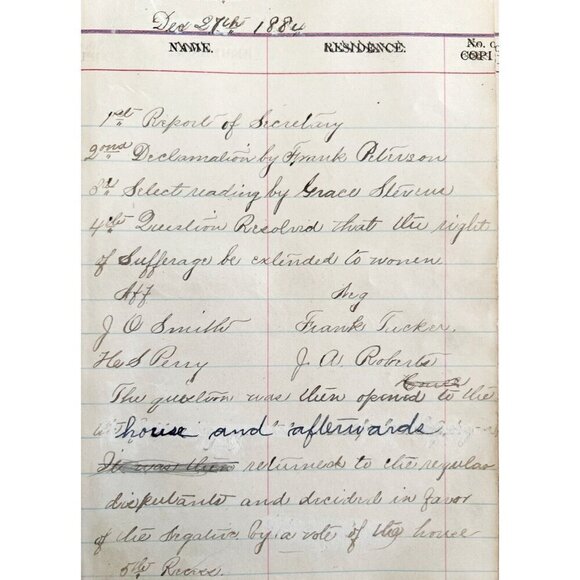 Dec 27th 1884
NAME. RESIDENCE. No. o
COPI
1st Report of Secretary
2ond Declamation by Frank Peterson
3rd Select reading by Grace Stevens
4th Question Resolved that the right
of Suffrage be extended to women
Aff Neg
J O Smith Frank Tucker.
H S Perry J. A. Roberts
The question was then opened to the
house and afterwards
It was then returned to the regular
disputants and decided in favor
of the negative by a vote of the house
5th Recess.